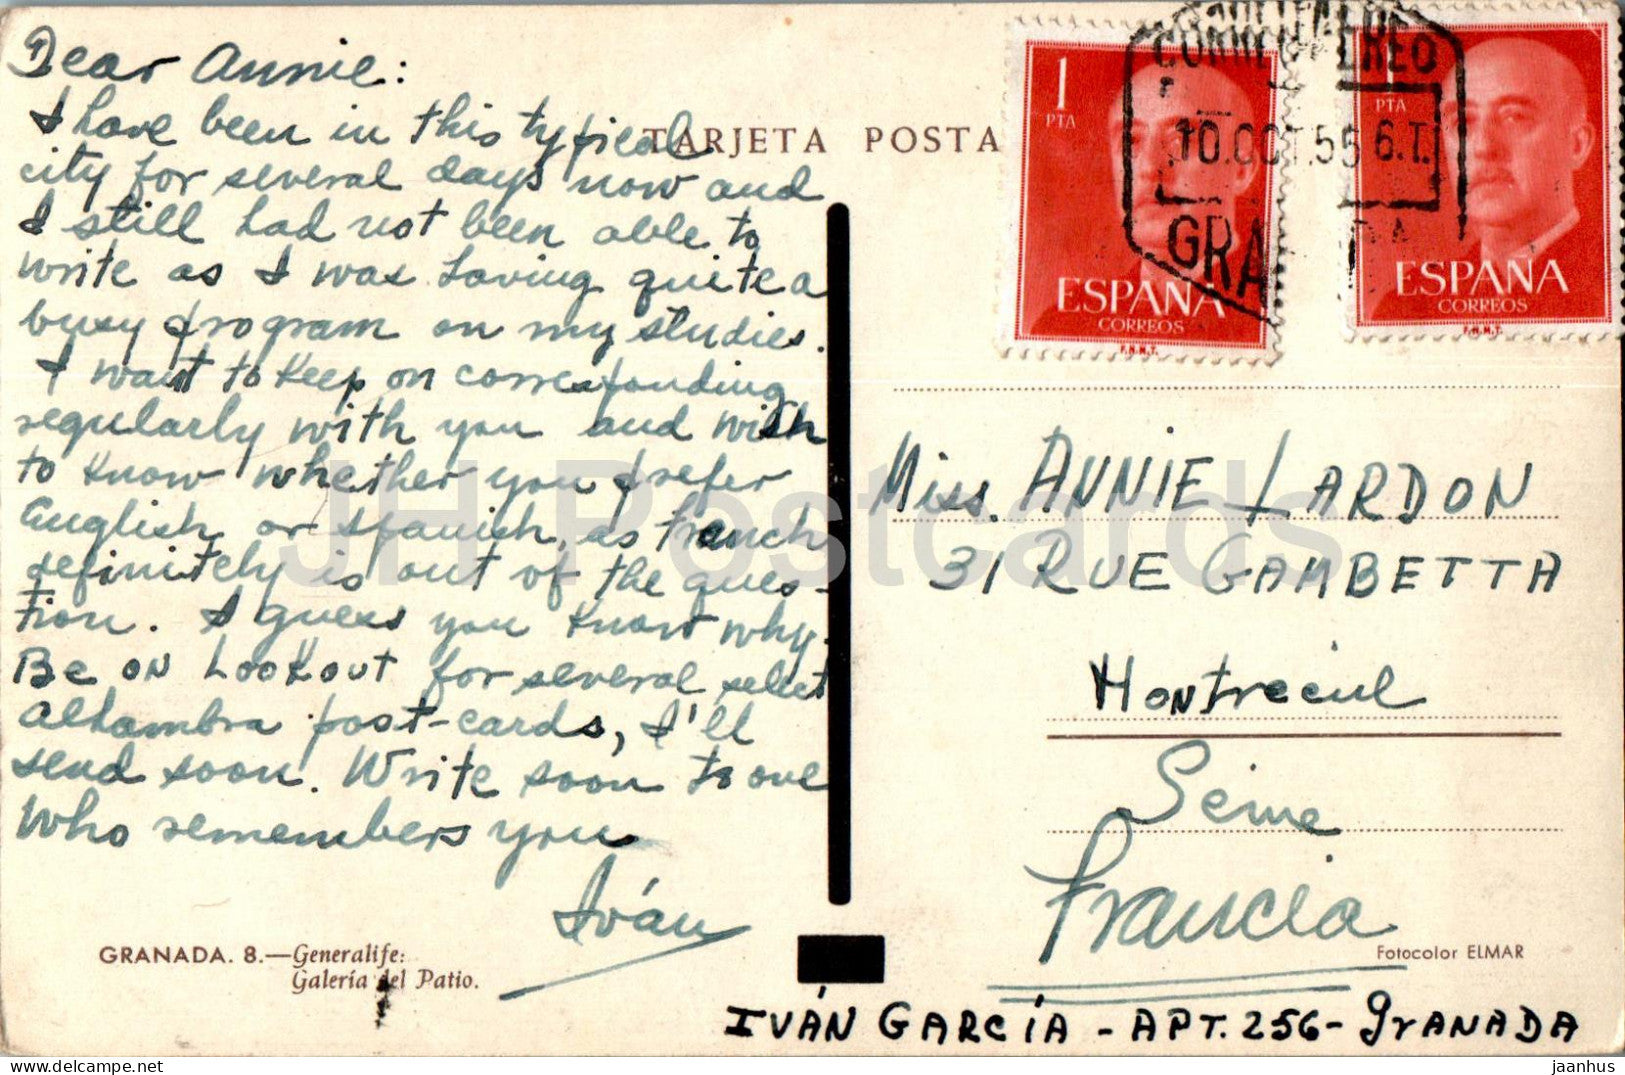 Dear Annie:
I have been in this typical
city for several days now and
I still had not been able to
write as I was having quite a
busy program on my studies.
I want to keep on corresponding
regularly with you and wish
to know whether you prefer
English or Spanish, as French
definitely is out of the ques-
tion. I guess you know why.
Be on Lookout for several select
Alhambra post-cards, I'll
send soon. Write soon to one
who remembers you
Iván
GRANADA. 8.—Generalife:
Galería del Patio.
TARJETA POSTA
1
PTA
ESPAÑA
CORREOS
F.N.M.T.
1
PTA
ESPAÑA
CORREOS
F.N.M.T.
CORREO AEREO
10.OCT.55 6.T.
GRANADA
Miss. ANNIE LARDON
31 RUE GAMBETTA
Montreuil
Seine
Francia
Fotocolor ELMAR
IVÁN GARCÍA - APT. 256 - GRANADA
JH Postcards
www.delcampe.net
jaanhus